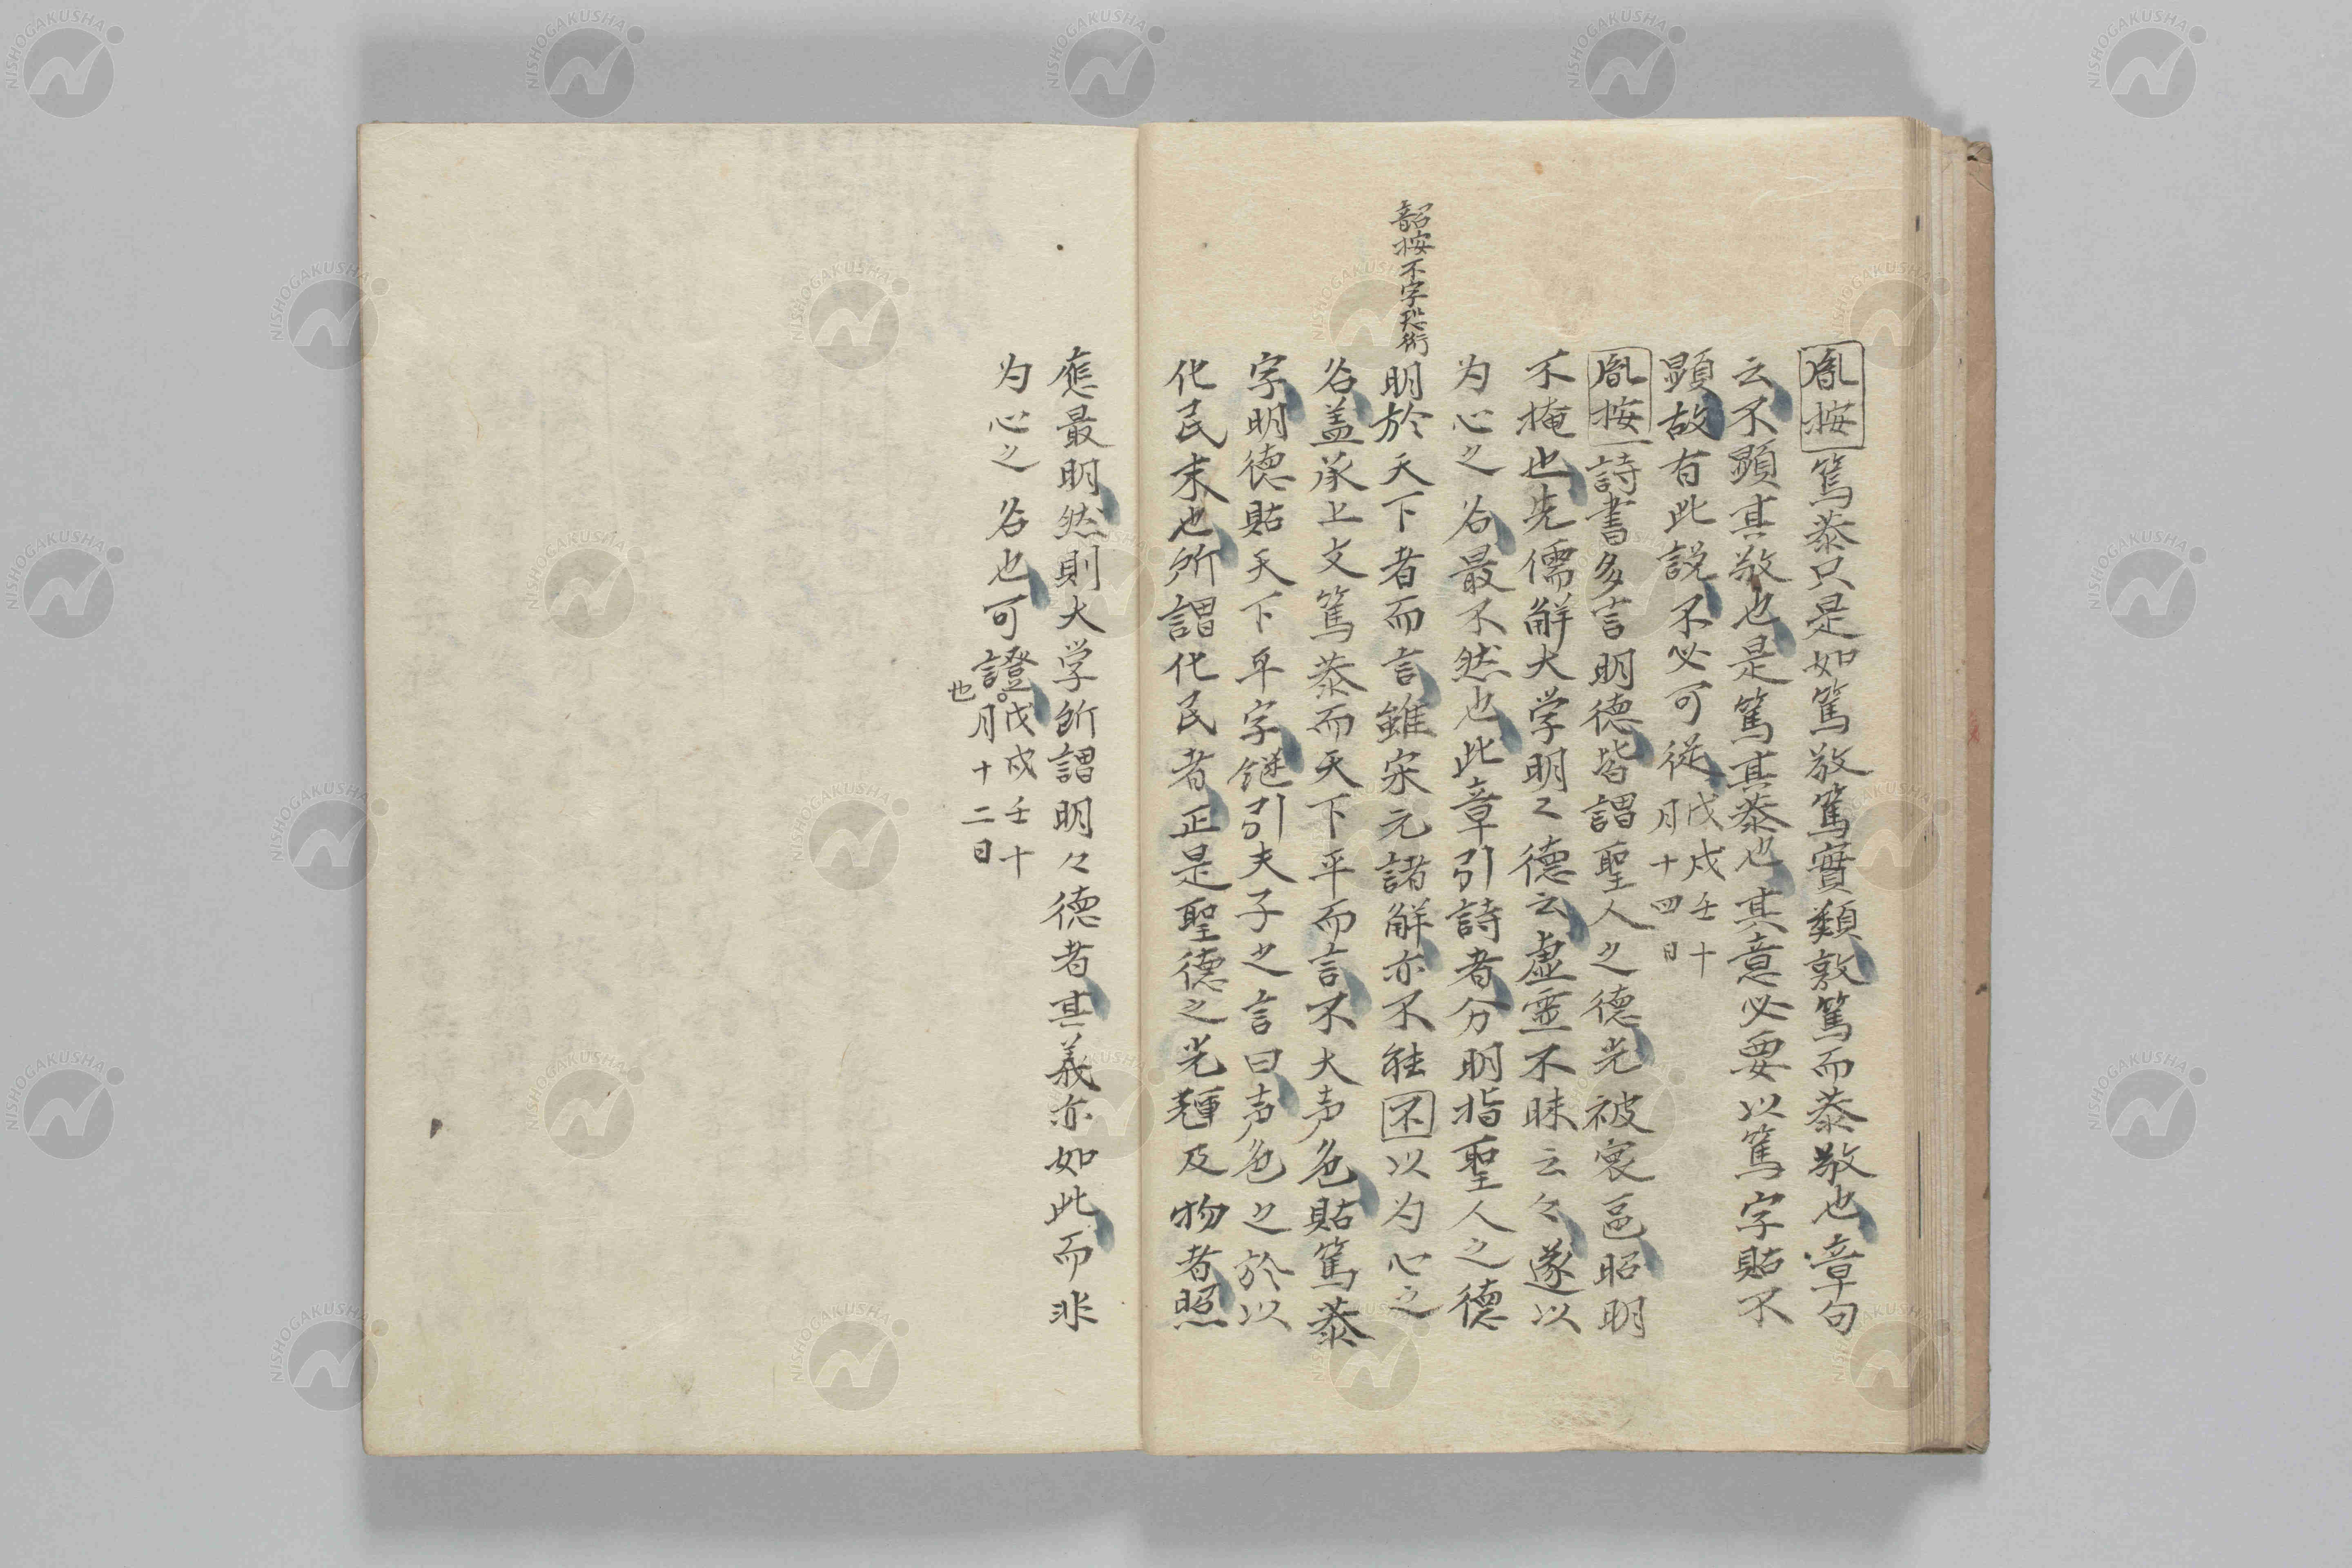 胤按篤恭只是如篤敬篤實類敦篤而恭敬也章句
云不顕其敬也是篤其恭也其意必要以篤字貼不
顕故有此説不必可従戊戌壬十
月十四日
胤按詩書多言明徳皆謂聖人之徳光被寰區昭明
不掩也先儒解大学明々徳云虚霊不昧云々遂以
为心之名最不然也此章引詩者分明指聖人之徳
韶按不字恐衍
明於天下者而言雖宋元諸解亦不能不以为心之
名盖承上文篤恭而天下平而言不大声色貼篤恭
字明徳貼天下平字継引夫子之言曰声色之於以
化民末也所謂化民者正是聖徳之光輝及物者照
應最明然則大学所謂明々徳者其義亦如此而非
为心之名也可證也戊戌壬十
月十二日
NISHOGAKUSHA